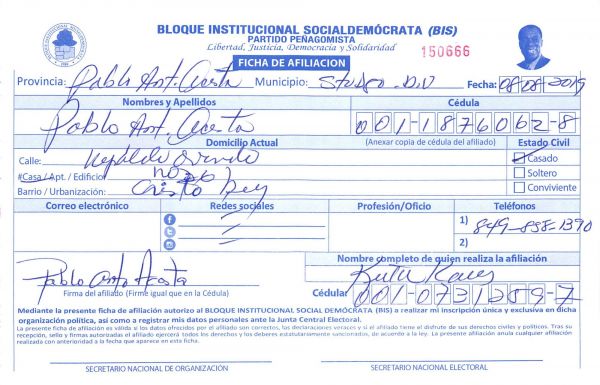 BLOQUE INSTITUCIONAL SOCIALDEMÓCRATA (BIS)
PARTIDO PEÑAGOMISTA
Libertad, Justicia, Democracia y Solidaridad
150666
FICHA DE AFILIACION
Provincia: Pablo Ant. Acosta Municipio: Fecha: 08/08/2019
Nombres y Apellidos Cédula
Pablo Ant. Acosta 001-1876062-8
Domicilio Actual (Anexar copia de cédula del afiliado) Estado Civil
Calle: Casado
#Casa/Apt. / Edificio: Soltero
Barrio / Urbanización: Cristo Rey Conviviente
Correo electrónico Redes sociales Profesión/Oficio Teléfonos
1) 849-858-1390
2)
Nombre completo de quien realiza la afiliación
Pablo Anto Acosta
Firma del afiliado (Firme igual que en la Cédula) Cédular 001-0731289-7
Mediante la presente ficha de afiliación autorizo al BLOQUE INSTITUCIONAL SOCIAL DEMÓCRATA (BIS) a realizar mi inscripción única y exclusiva en dicha
organización política, así como a registrar mis datos personales ante la Junta Central Electoral.
La presente ficha de afiliación es válida si los datos ofrecidos por el afiliado son correctos, las declaraciones veraces y si el afiliado tiene el disfrute de sus derechos civiles y políticos. Tras su
recepción, sello y firmas autorizadas el afiliado ejercerá todos los derechos y los deberes estatutariamente sancionados, de acuerdo a la ley. La presente afiliación anula cualquier afiliación
realizada con anterioridad a la fecha que aparece en esta ficha.
SECRETARIO NACIONAL DE ORGANIZACIÓN SECRETARIO NACIONAL ELECTORAL